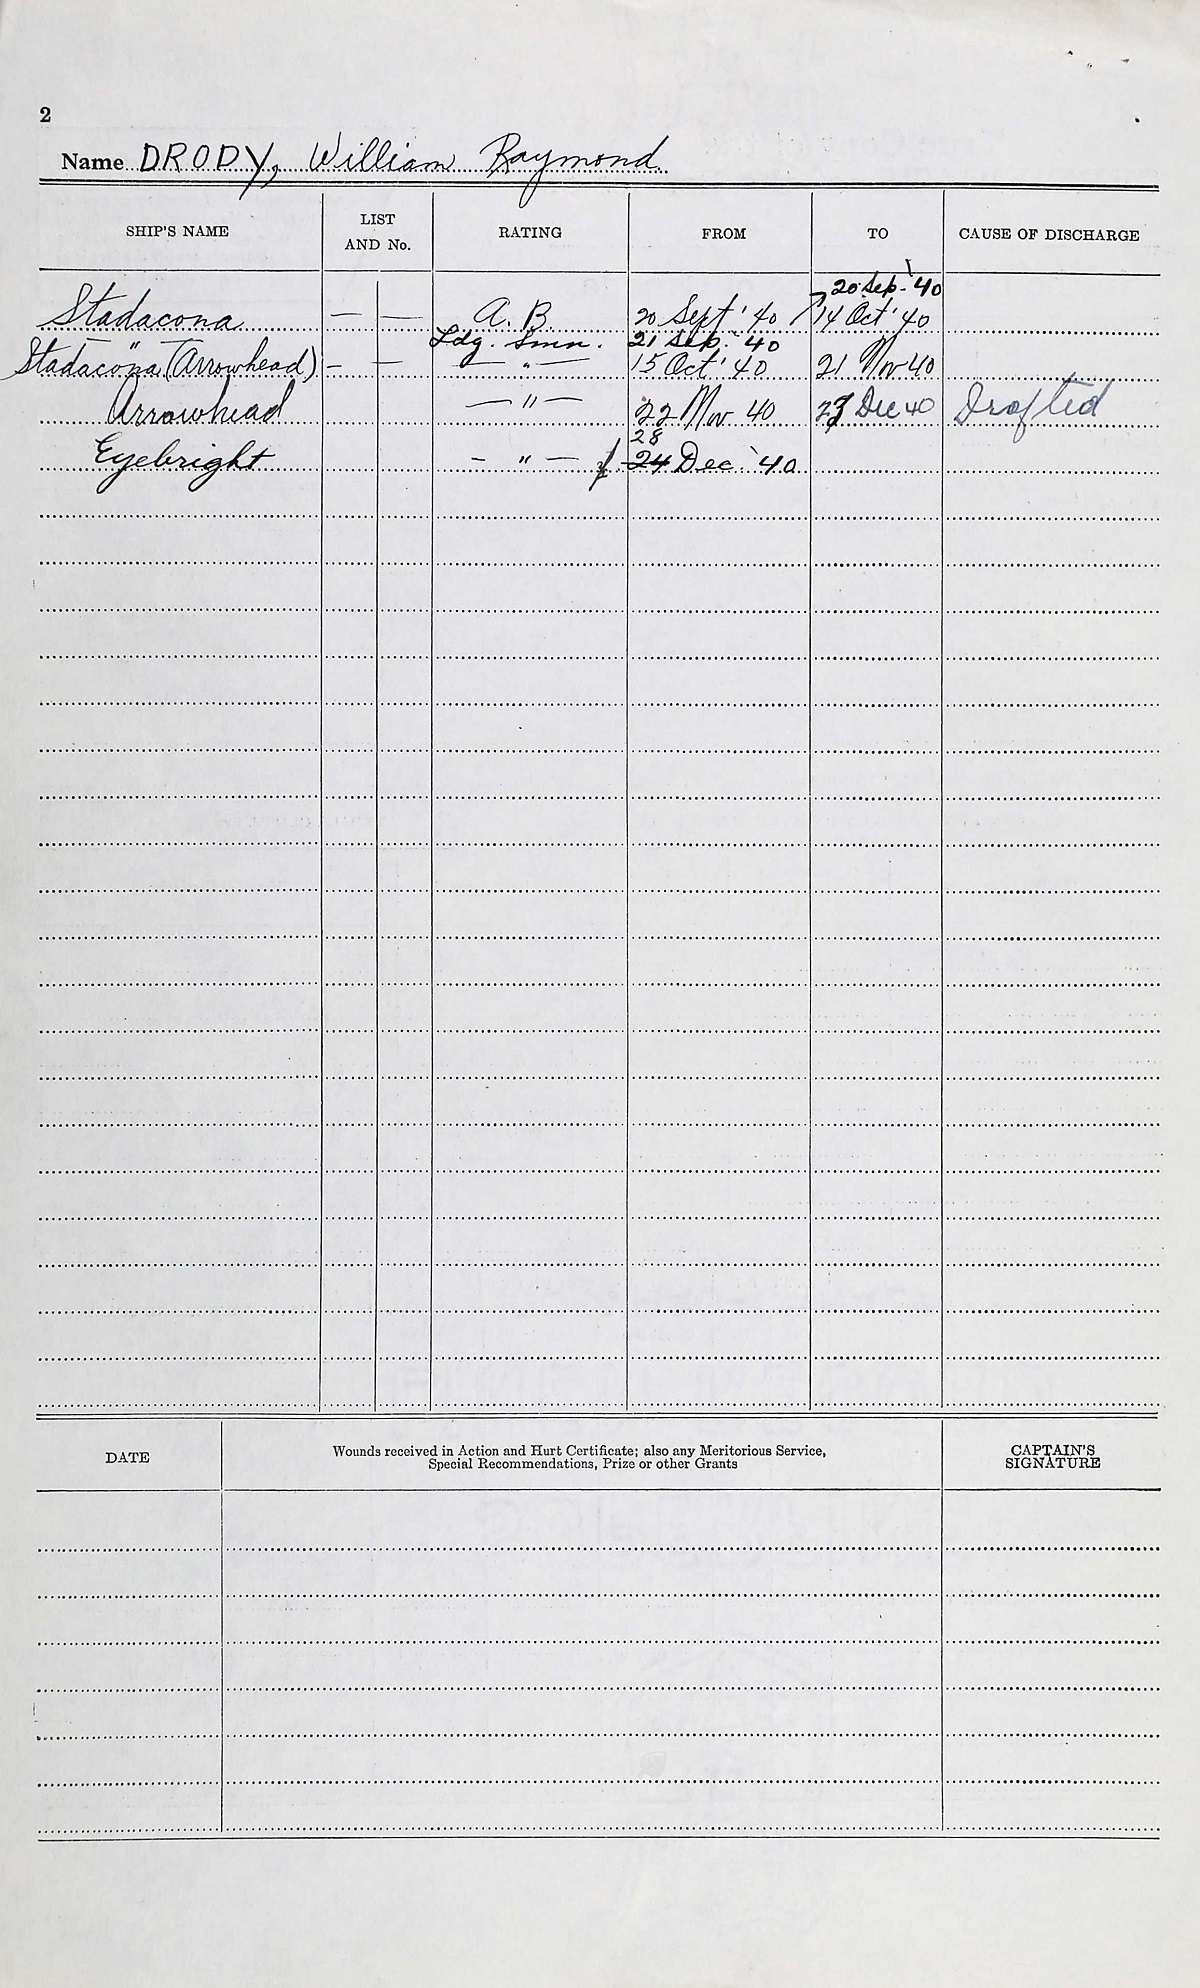 2
Name DRODY, William Raymond
SHIP'S NAME LIST AND No. RATING FROM TO CAUSE OF DISCHARGE
20 Sep. '40
Stadacona — — A. B. 20 Sept '40 14 Oct '40
— " — Ldg. Smn. 21 Sep. '40
Stadacona (Arrowhead) — — " — 15 Oct '40 21 Nov 40
Arrowhead — " — 22 Nov 40 27 Dec 40 Drafted
28
Eyebright — " — 24 Dec. '40
DATE Wounds received in Action and Hurt Certificate; also any Meritorious Service, CAPTAIN'S
Special Recommendations, Prize or other Grants SIGNATURE